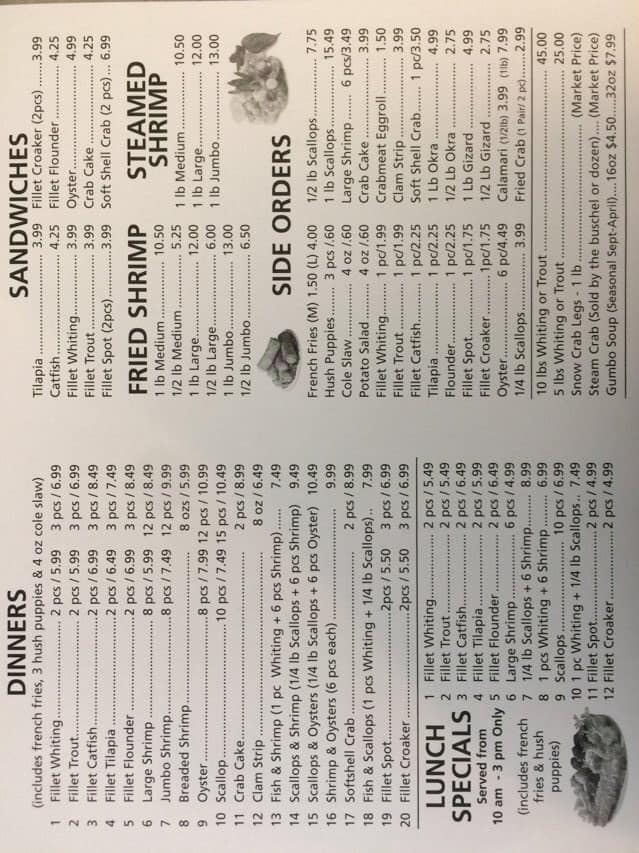 DINNERS
(includes french fries, 3 hush puppies & 4 oz cole slaw)
1 Fillet Whiting.................. 2 pcs / 5.99 3 pcs / 6.99
2 Fillet Trout.................. 2 pcs / 5.99 3 pcs / 6.99
3 Fillet Catfish.................. 2 pcs / 6.99 3 pcs / 8.49
4 Fillet Tilapia.................. 2 pcs / 6.49 3 pcs / 7.49
5 Fillet Flounder.................. 2 pcs / 6.99 3 pcs / 8.49
6 Large Shrimp.................. 8 pcs / 5.99 12 pcs / 8.49
7 Jumbo Shrimp.................. 8 pcs / 7.49 12 pcs / 9.99
8 Breaded Shrimp.................. 8 ozs / 5.99
9 Oyster.................. 8 pcs / 7.99 12 pcs / 10.99
10 Scallop.................. 10 pcs / 7.49 15 pcs / 10.49
11 Crab Cake.................. 2 pcs / 8.99
12 Clam Strip.................. 8 oz / 6.49
13 Fish & Shrimp (1 pc Whiting + 6 pcs Shrimp)...... 7.49
14 Scallops & Shrimp (1/4 lb Scallops + 6 pcs Shrimp) 9.49
15 Scallops & Oysters (1/4 lb Scallops + 6 pcs Oyster) 10.49
16 Shrimp & Oysters (6 pcs each).................. 9.99
17 Softshell Crab.................. 2 pcs / 8.99
18 Fish & Scallops (1 pcs Whiting + 1/4 lb Scallops).. 7.99
19 Fillet Spot.................. 2pcs / 5.50 3 pcs / 6.99
20 Fillet Croaker.................. 2pcs / 5.50 3 pcs / 6.99
LUNCH
SPECIALS
Served from
10 am - 3 pm Only
(includes french
fries & hush
puppies)
1 Fillet Whiting.................. 2 pcs / 5.49
2 Fillet Trout.................. 2 pcs / 5.49
3 Fillet Catfish.................. 2 pcs / 6.49
4 Fillet Tilapia.................. 2 pcs / 5.99
5 Fillet Flounder.................. 2 pcs / 6.49
6 Large Shrimp.................. 6 pcs / 4.99
7 1/4 lb Scallops + 6 Shrimp...... 8.99
8 1 pcs Whiting + 6 Shrimp........ 6.99
9 Scallops.................. 10 pcs / 6.99
10 1 pc Whiting + 1/4 lb Scallops... 7.49
11 Fillet Spot.................. 2 pcs / 4.99
12 Fillet Croaker.................. 2 pcs / 4.99
SANDWICHES
Tilapia.................. 3.99
Catfish.................. 4.25
Fillet Whiting.................. 3.99
Fillet Trout.................. 3.99
Fillet Spot (2pcs).................. 3.99
Fillet Croaker (2pcs)...... 3.99
Fillet Flounder.................. 4.25
Oyster.................. 4.99
Crab Cake.................. 4.25
Soft Shell Crab (2 pcs)... 6.99
FRIED SHRIMP
1 lb Medium.................. 10.50
1/2 lb Medium.................. 5.25
1 lb Large.................. 12.00
1/2 lb Large.................. 6.00
1 lb Jumbo.................. 13.00
1/2 lb Jumbo.................. 6.50
STEAMED
SHRIMP
1 lb Medium.................. 10.50
1 lb Large.................. 12.00
1 lb Jumbo.................. 13.00
SIDE ORDERS
French Fries (M) 1.50 (L) 4.00
Hush Puppies...... 3 pcs /.60
Cole Slaw.................. 4 oz /.60
Potato Salad.................. 4 oz /.60
Fillet Whiting........ 1 pc/1.99
Fillet Trout.................. 1 pc/1.99
Fillet Catfish.................. 1 pc/2.25
Tilapia.................. 1 pc/2.25
Flounder.................. 1 pc/2.25
Fillet Spot.................. 1 pc/1.75
Fillet Croaker...... 1pc/1.75
Oyster.................. 6 pc/4.49
1/4 lb Scallops.................. 3.99
1/2 lb Scallops.................. 7.75
1 lb Scallops.................. 15.49
Large Shrimp........ 6 pcs/3.49
Crab Cake.................. 3.99
Crabmeat Eggroll........ 1.50
Clam Strip.................. 3.99
Soft Shell Crab...... 1 pc/3.50
1 Lb Okra.................. 4.99
1/2 Lb Okra.................. 2.75
1 Lb Gizard.................. 4.99
1/2 Lb Gizard.................. 2.75
Calamari (1/2lb) 3.99 (1lb) 7.99
Fried Crab (1 Pair/ 2 pc)......2.99
10 lbs Whiting or Trout.................. 45.00
5 lbs Whiting or Trout.................. 25.00
Snow Crab Legs - 1 lb.................. (Market Price)
Steam Crab (Sold by the buschel or dozen).... (Market Price)
Gumbo Soup (Seasonal Sept-April)....16oz $4.50....32oz $7.99